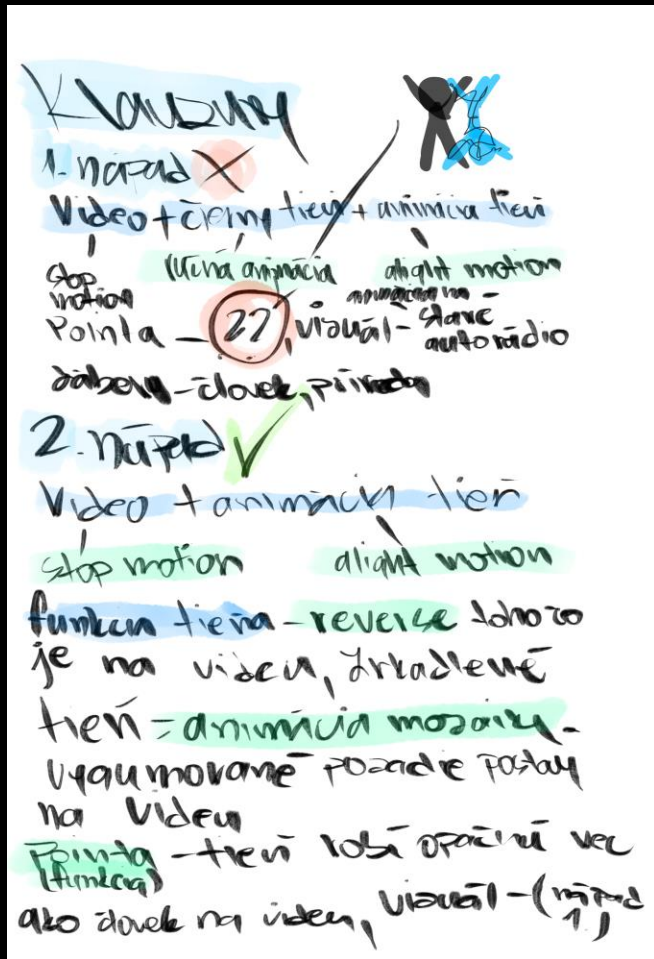 Klauzury
1. nápad X
Video + čierny tieň + animácia tieň
stop motion
ručná animácia
alight motion
Pointa - ??, vizuál - animácia na stare autorádio
zábery - človek, príroda
2. nápad ✓
Video + animácia tieň
stop motion alight motion
funkcia tieňa - reverse toho čo
je na videu, zrkadlené
tieň = animácia mozaiky -
vygumované pozadie postavy
na videu
Pointa - tieň robí opačnú vec
(funkcia)
ako človek na videu, vizuál - (nápad 1.)